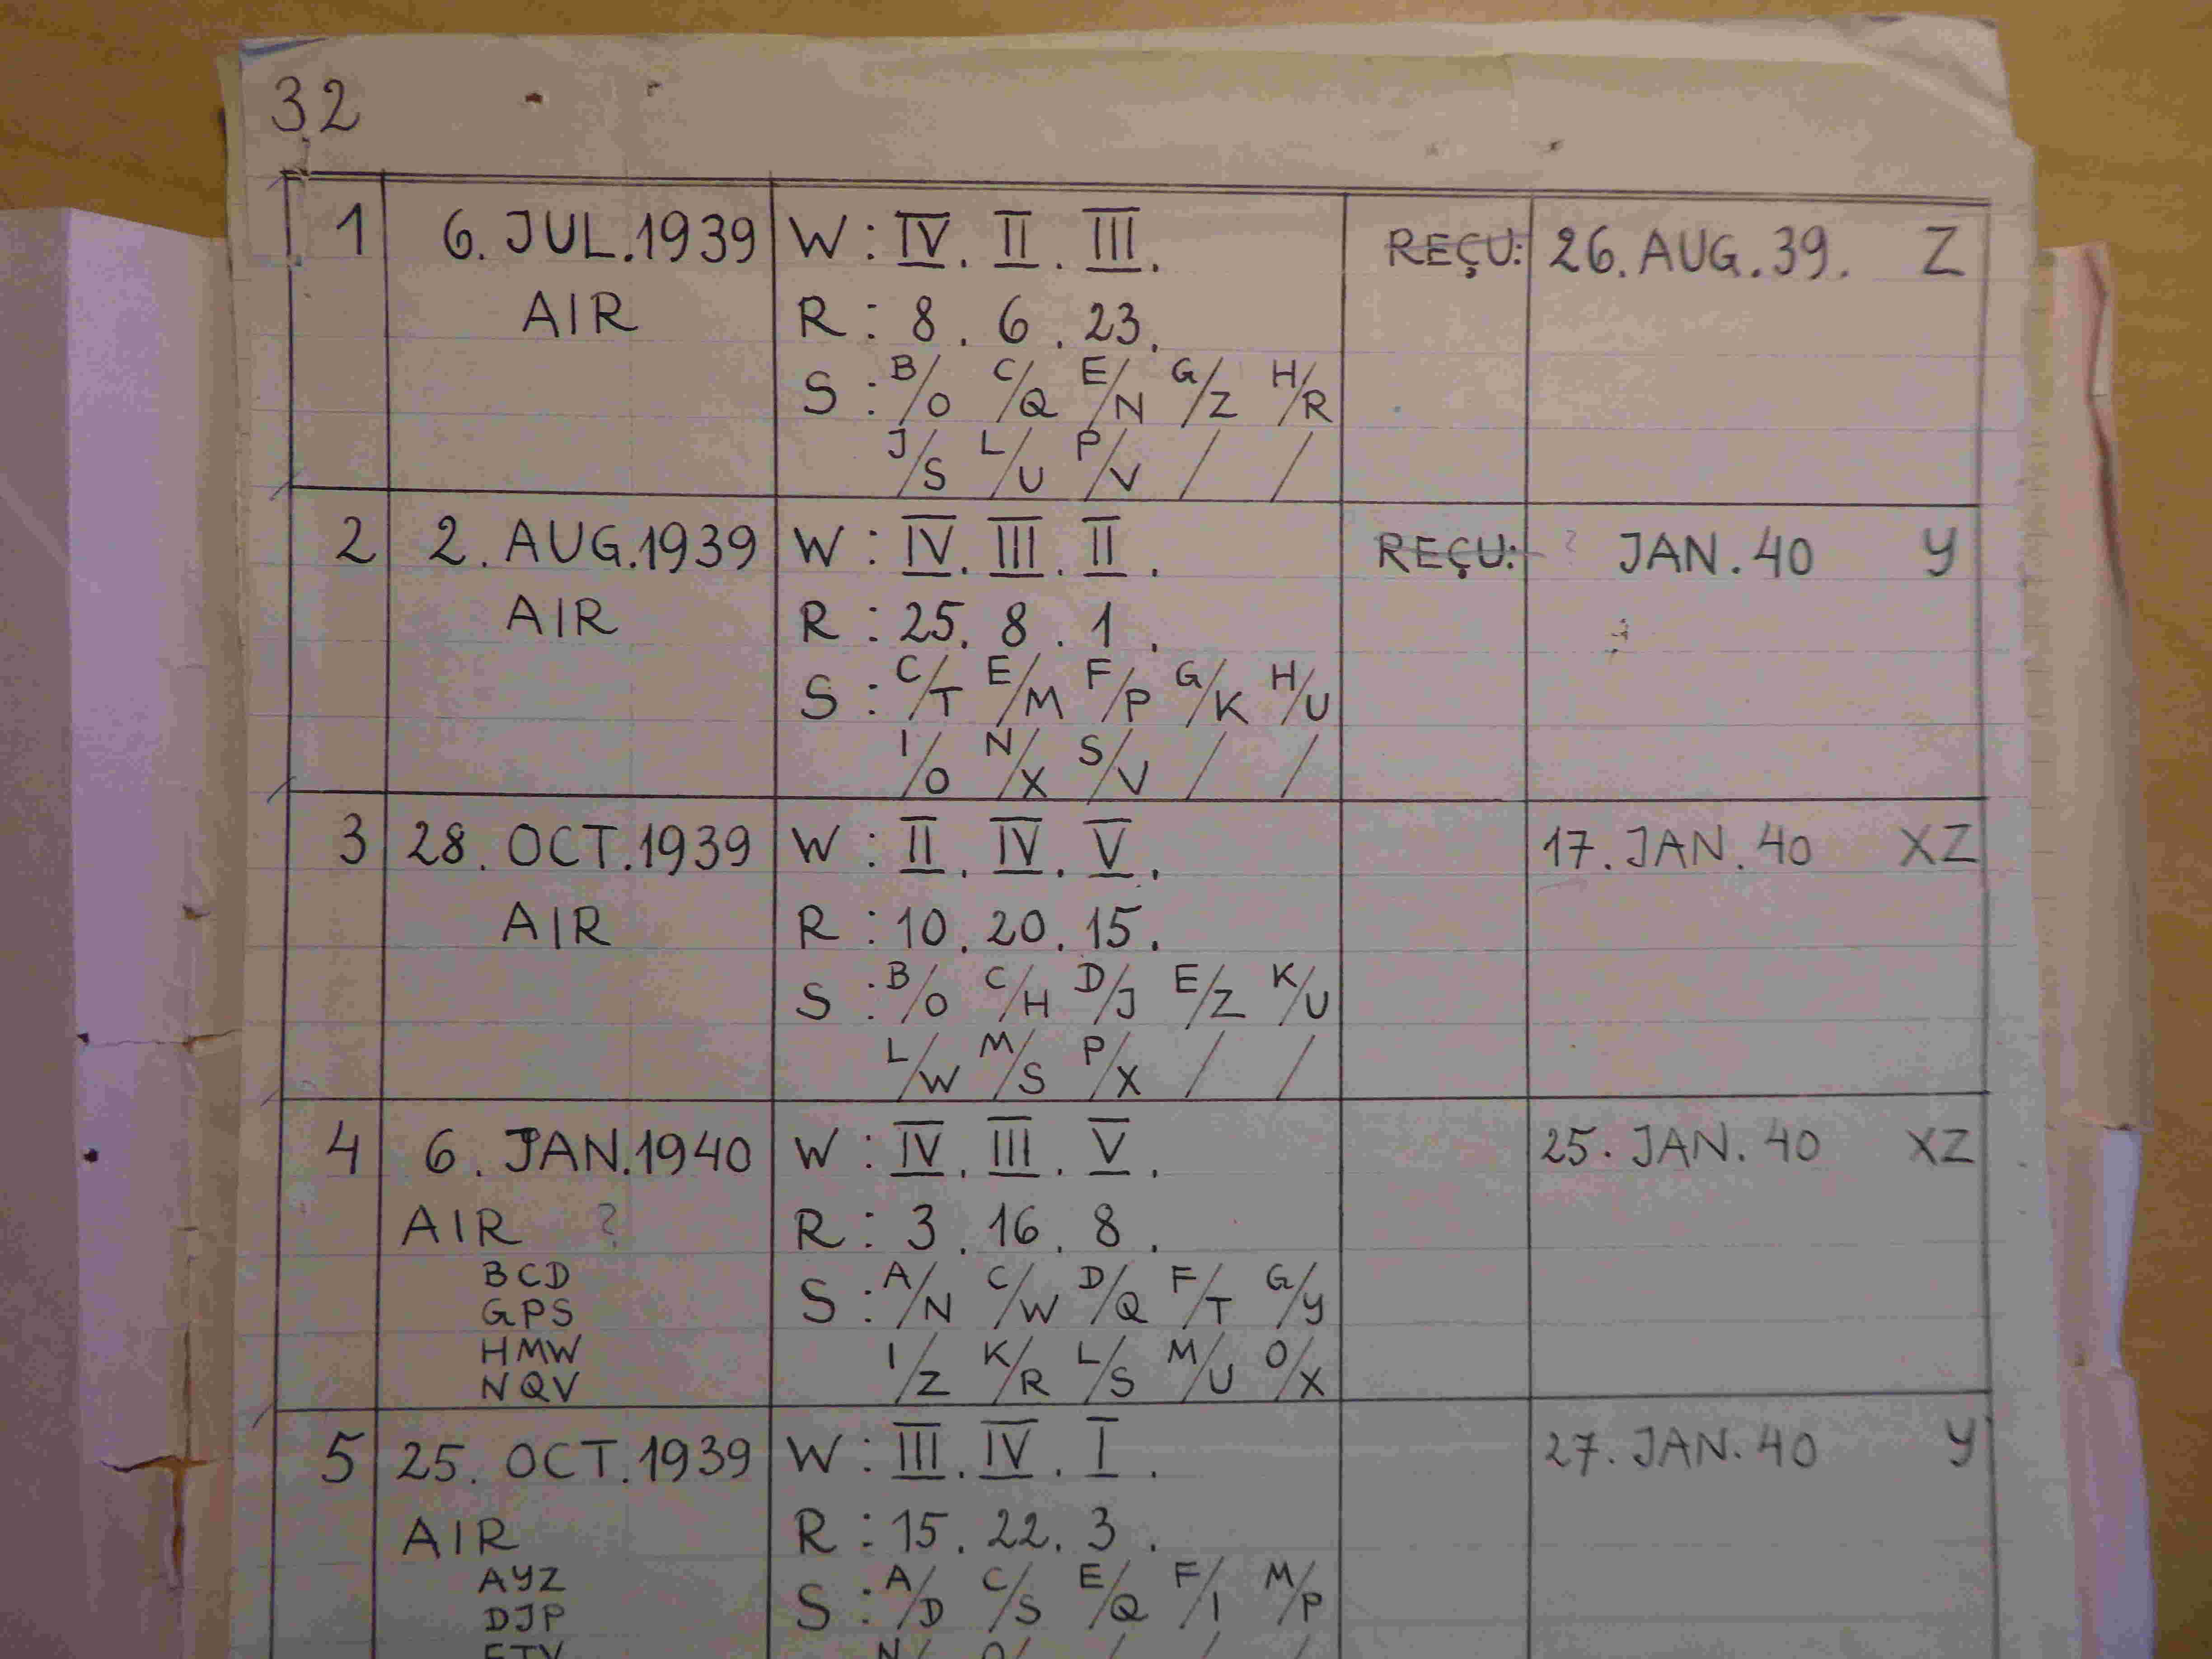 32
1 6. JUL. 1939 W : IV. II. III. REÇU: 26. AUG. 39. Z
AIR R : 8. 6. 23.
S : B/O C/Q E/N G/Z H/R
J/S L/U P/V / /
2 2. AUG. 1939 W : IV. III. II. REÇU: ? JAN. 40 Y
AIR R : 25. 8. 1.
S : C/T E/M F/P G/K H/U
I/O N/X S/V / /
3 28. OCT. 1939 W : II. IV. V. 17. JAN. 40 XZ
AIR R : 10. 20. 15.
S : B/O C/H D/J E/Z K/U
L/W M/S P/X / /
4 6. JAN. 1940 W : IV. III. V. 25. JAN. 40 XZ
AIR ? R : 3. 16. 8.
BCD
GPS S : A/N C/W D/Q F/T G/Y
HMW
NQV I/Z K/R L/S M/U O/X
5 25. OCT. 1939 W : III. IV. I. 27. JAN. 40 Y
AIR R : 15. 22. 3.
AYZ
DJP S : A/D C/S E/Q F/I M/P